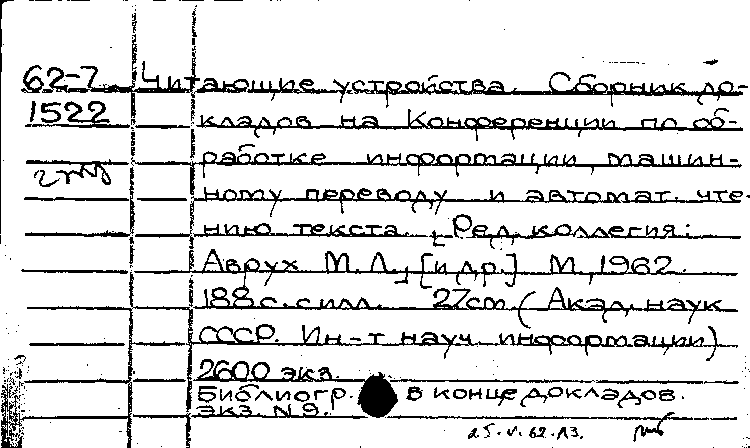 62-7 Читающие устройства. Сборник до-
1522 кладов на Конференции по об-
работке информации, машин-
ному переводу и автомат. чте-
нию текста. [Ред. коллегия:
Аврух М.Л., [и др.] М., 1962.
188 с. с илл. 27 см. (Акад. наук
СССР. Ин-т науч. информации)
2600 экз.
Библиогр. в конце докладов.
экз. N9.
25.V.62.ЛЗ.